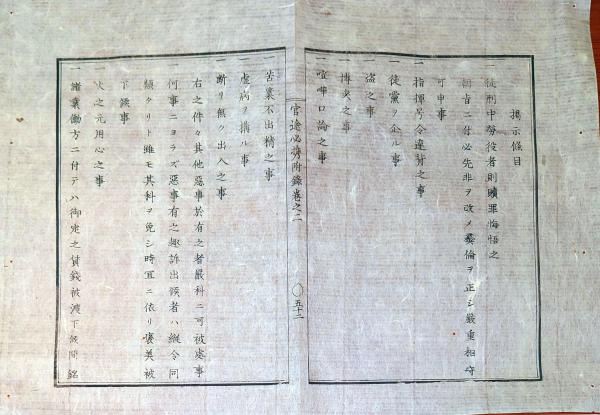 掲示條目
一 徒刑中労役者則贖罪悔悟之
朝旨ニ付必先非ヲ改メ彜倫ヲ正シ嚴重相守
可申事
一 指揮号令違背之事
一 徒黨ヲ企ル事
一 盗之事
一 博奕之事
一 喧嘩口論之事
官途必携附録巻之二
〇五十二
一 苦業不出精之事
一 虚病ヲ搆ル事
一 断リ無ク出入之事
右之件々其他惡事於有之者嚴科ニ可被處事
一 何事ニヨラズ惡事有之趣訴出候者ハ縦令同
類タリト雖モ其科ヲ免シ時宜ニ依リ褒美被
下候事
一 火之元用心之事
一 諸業働方ニ付テハ御定之賃錢被渡下候間銘